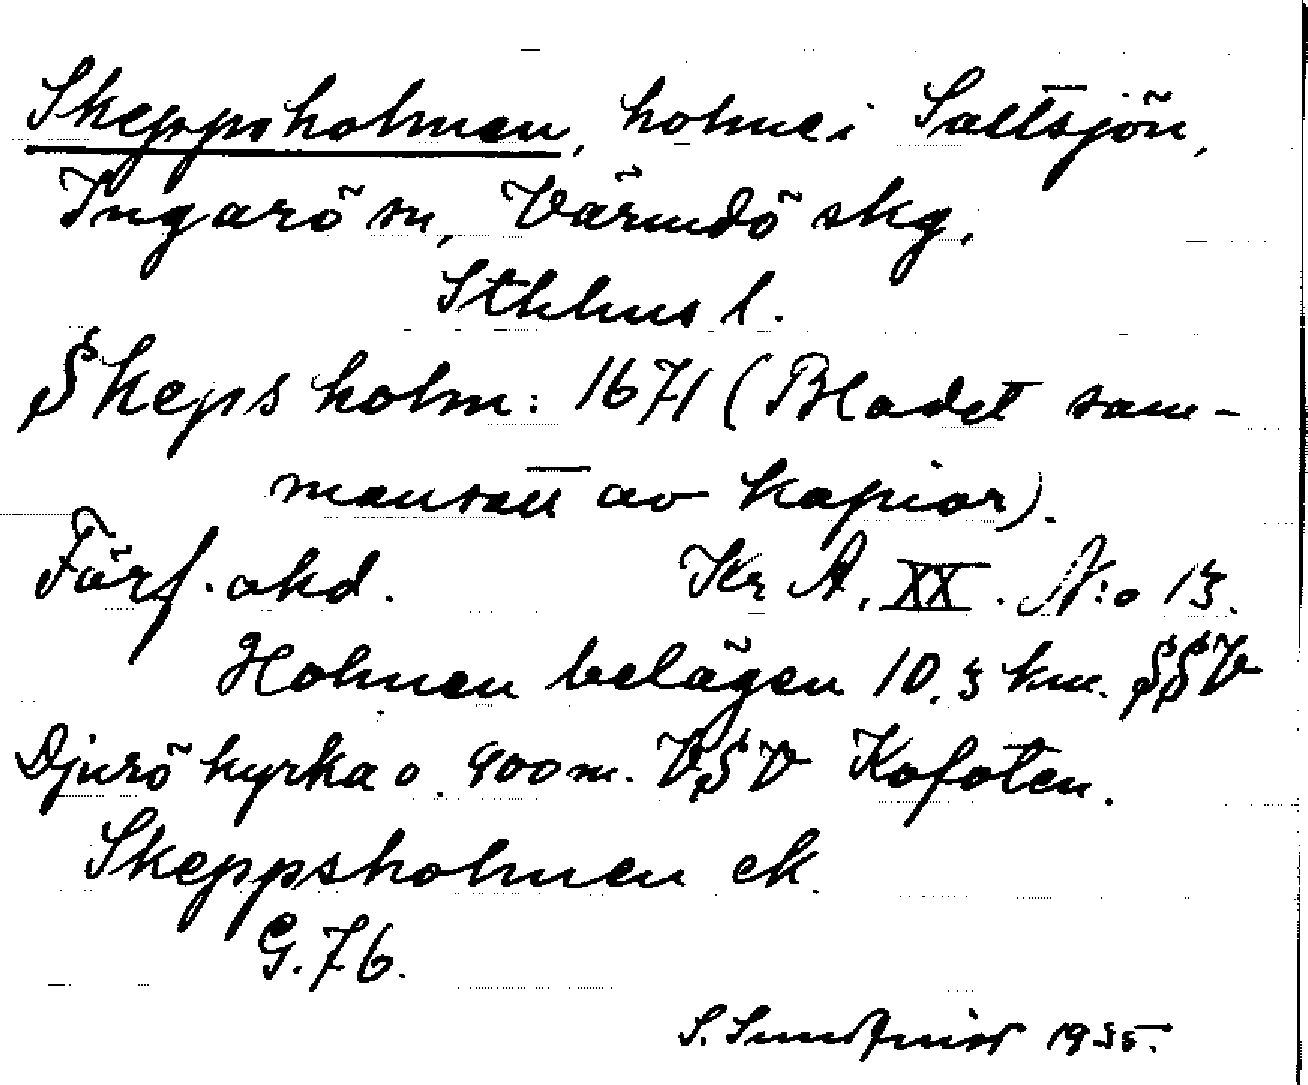 Skeppsholmen, holme i Saltsjön,
Ingarö sn, Värmdö skg,
Sthlms l.
Skeps holm: 1671 (Bladet sam-
mansatt av kopior).
Förf. okd. Kr A, XX. N:o 13.
Holmen belägen 10,3 km. SSV
Djurö kyrka o. 900 m. VSV Kofoten.
Skeppsholmen ek.
G. 76.
S. Sundquist 1935.